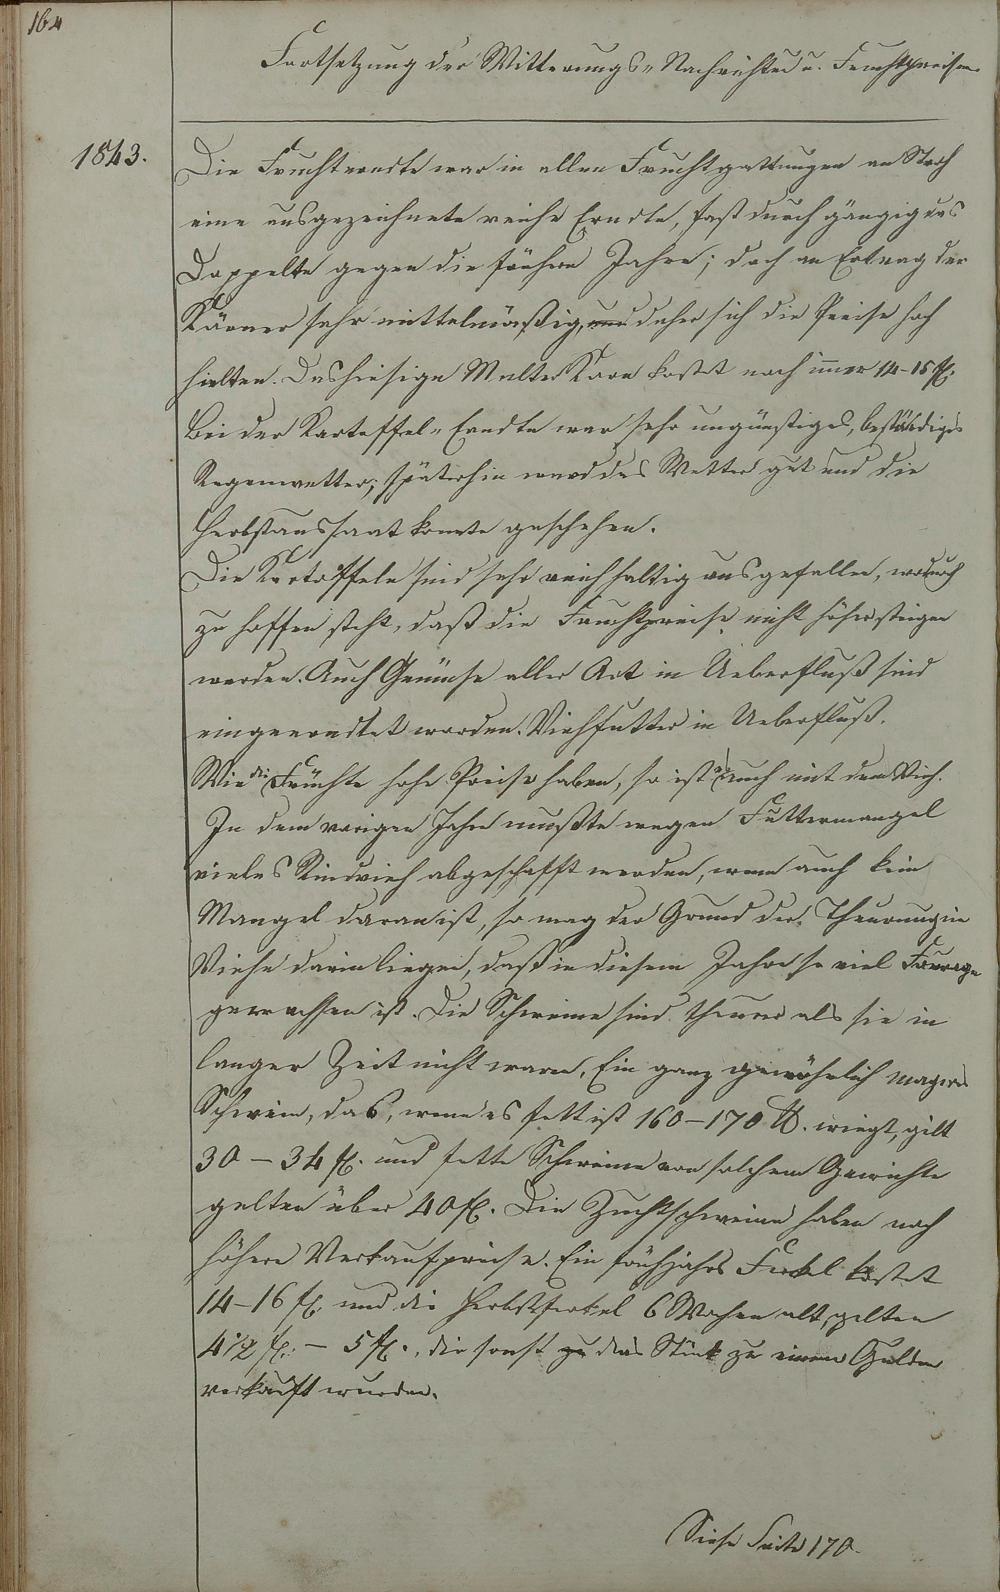 164
Fortsetzung der Witterungs-Nachrichten u. Fruchtpreisen
1843.
Die Fruchterndte war in allen Fruchtgattungen an Stroh
eine ausgezeichnete reiche Erndte, fast durch gängig das
Doppelte gegen die frühern Jahre; doch an Ertrag der
Körner sehr mittelmäßig, und daher sich die Preise hoch
hielten. Das hiesige Malter Korn kostet noch immer 14-15 fl.
Bei der Kartoffel-Erndte war sehr ungünstiges, beständiges
Regenwetter; späterhin ward das Wetter gut und die
Herbstaussaat konnte geschehen.
Die Kartoffeln sind sehr reichhaltig ausgefallen, wodurch
zu hoffen steht, daß die Fruchtpreise nicht höher steigen
werden. Auch Gemüse aller Art in Ueberfluß sind
eingeerndtet worden. Viehfutter in Ueberfluß.
Wie die Früchte hohe Preise haben, so ist es auch mit dem Vieh.
In dem vorigen Jahre mußte wegen Futtermangel
vieles Rindvieh abgeschafft werden, wenn auch kein
Mangel daran ist, so mag der Grund der Theurung im
Viehe darin liegen, daß in diesem Jahre so viel Fourage
gewachsen ist. Die Schweine sind theurer als sie in
langer Zeit nicht waren. Ein ganz gewöhnlich mageres
Schwein, das, wenn es fett ist 160-170 ℔. wiegt, gilt
30 - 34 fl. und fette Schweine von solchem Gewichte
gelten über 40 fl. Die Zuchtschweine haben noch
höhere Verkaufpreise. Ein frühjahrs Ferkel kostet
14-16 fl. und die Herbstferkel 6 Wochen alt, gelten
4 1/2 fl. - 5 fl., die sonst zu das Stück zu einem Gulden
verkauft wurden.
Siehe Seite 170.